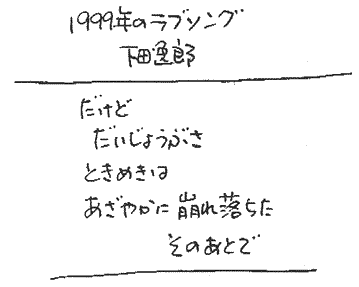 1999年のラブソング
下田逸郎
だけど
だいじょうぶさ
ときめきは
あざやかに崩れ落ちた
そのあとで